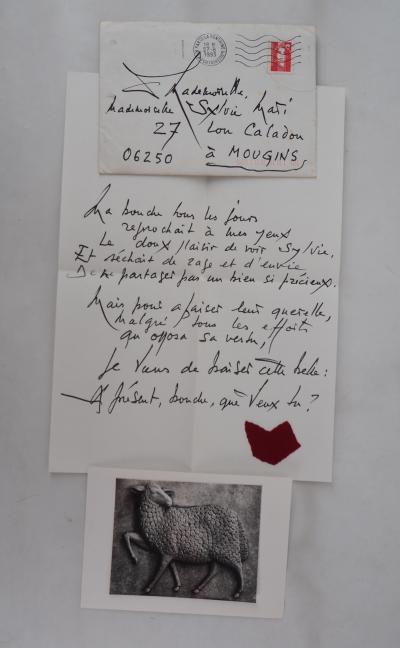 Mademoiselle,
Mademoiselle Sylvie Mari
27 Lou Caladou
06250 à MOUGINS
Ma bouche tous les jours
reprochait à mes yeux
Le doux plaisir de voir Sylvie,
Et séchait de rage et d'envie
De ne partager pas un bien si précieux.
Mais pour apaiser leur querelle,
Malgré tous les efforts
qu'opposa sa vertu,
Je viens de baiser cette belle :
À présent, bouche, que veux tu ?